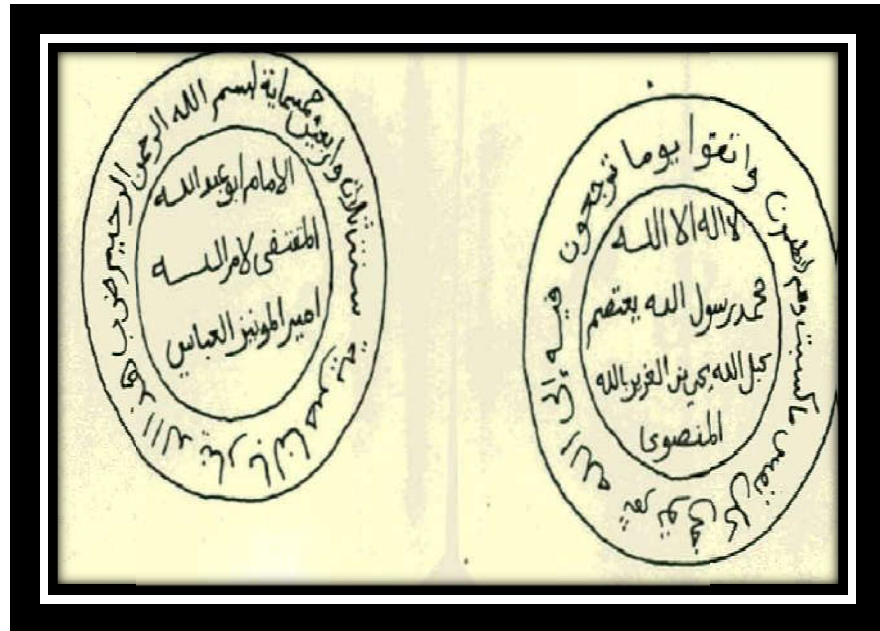 واتقوا يوما ترجعون فيه إلى الله ثم توفى كل نفس ما كسبت وهم لايظلمون
لا اله الا الله
محمد رسول الله يعتصم
بحبل الله يحيى بن العزيز بالله
المنصورى
بسم الله الرحمن الرحيم ضرب هذا الدينار بالناصرية سنت ثلاث واربعين خمسماية
الامام ابو عبد الله
المقتفى لامر الله
امير المونيز العباسي